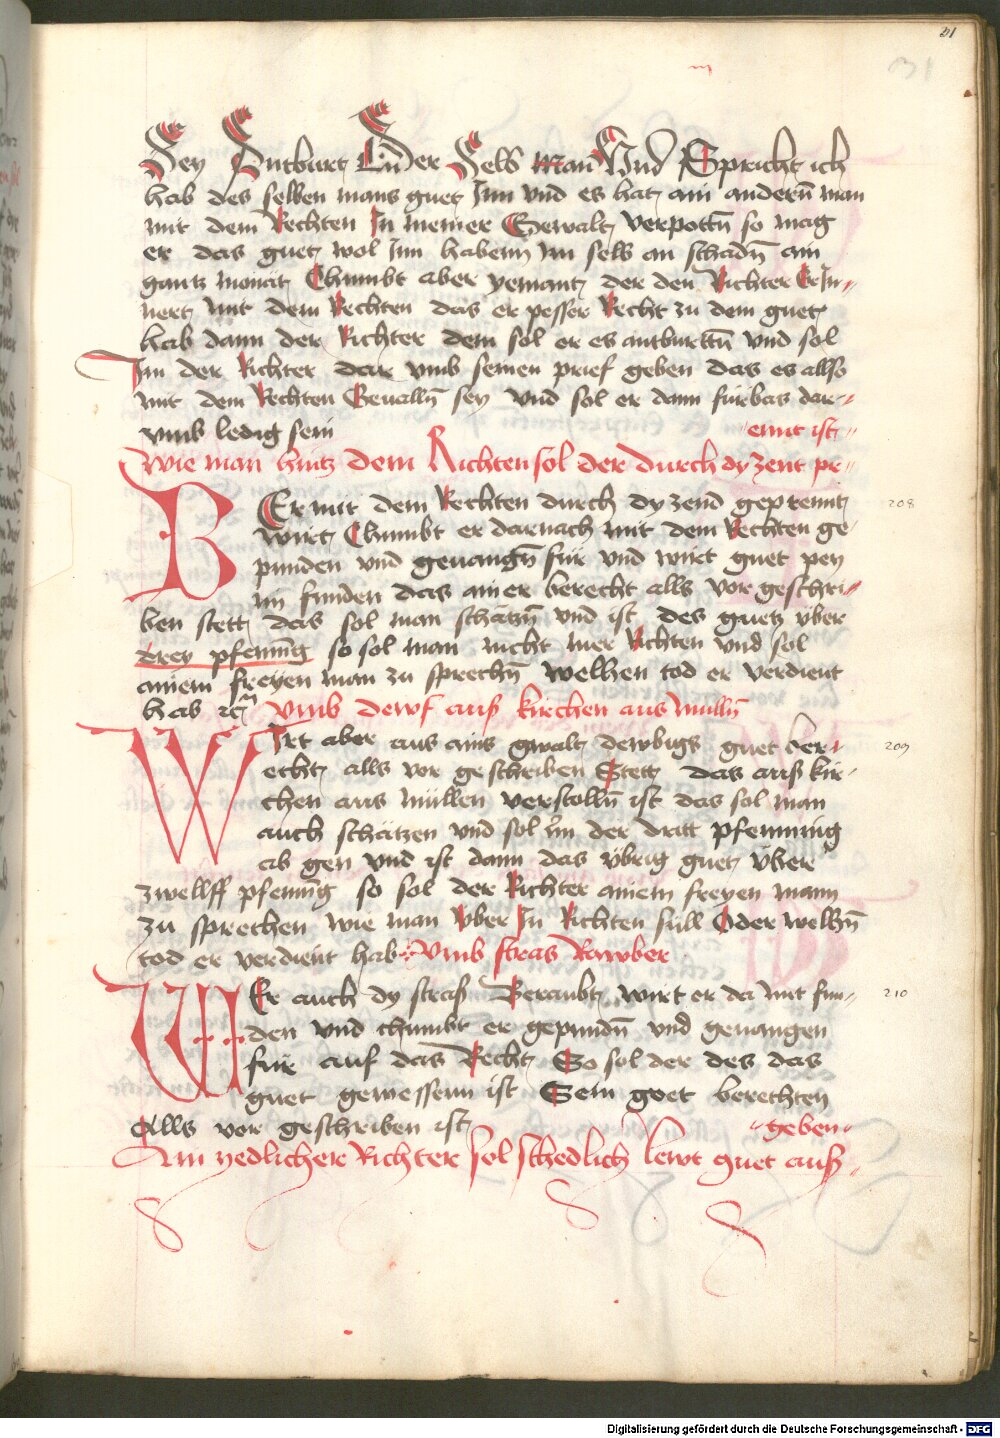 21
31
Sey Antburt Oder Selb man Und Spricht ich
hab des selben mans guet Inn vnd es hat ain anderñ man
mit dem Rechten In meiner Gewalt verpottñ so mag
er das guet wol Inn habenn Im selb an schadñ ain
gantz monat Chumbt aber yemant der den Richter Er In-
nert mit dem Rechten das er pesser Recht zu dem guet
hab dann der Richter dem sol er es antburttñ vnd sol
Im der Richter dar vmb seinen prief geben das es allso
mit dem Rechten Geuallñ sey vnd sol er dann fürbas dar-
vmb ledig sein
-emt ist-
Wie man hintz dem Richten sol der durch dy zent pr-
208
Er mit dem Rechten durch dy zend geprennt
wirt Chumbt er darnach mit dem Rechten ge-
punden vnd geuangñ für vnd wirt guet pey
im funden das ainer berecht alls vor geschri-
ben stett das sol man schätzñ vnd ist des guetz über
drey pfening so sol man nicht mer Richten vnd sol
ainem freyen man zu sprechñ welhen tod er verdient
hab
Vmb dewf auß kirchen aus Mullñ
209
Wirt aber aus ains gwalt dewbigs guet ber-
echt alls vor geschriben Stett das auß kir-
chen aus müllen verstollñ ist das sol man
auch schätzen vnd sol im der dritt pfenning
ab gen vnd ist dann das übrig guet über
zwellff pfening so sol der Richter ainem freyen mann
zu sprechen wie man vber In Richten süll Oder welhñ
tod er verdient hab Vmb stras Rawber
210
Wer auch dy straß Beraubt wirt er da mit fun-
den vnd chumbt er gepundñ vnd geuangen
für auf das Recht So sol der des das
guet gewessenn ist Sein guet berechten
Alls vor geschriben ist
-geben-
Ain yedlicher Richter sol schedlich lewt guet auß-
Digitalisierung gefördert durch die Deutsche Forschungsgemeinschaft - DFG